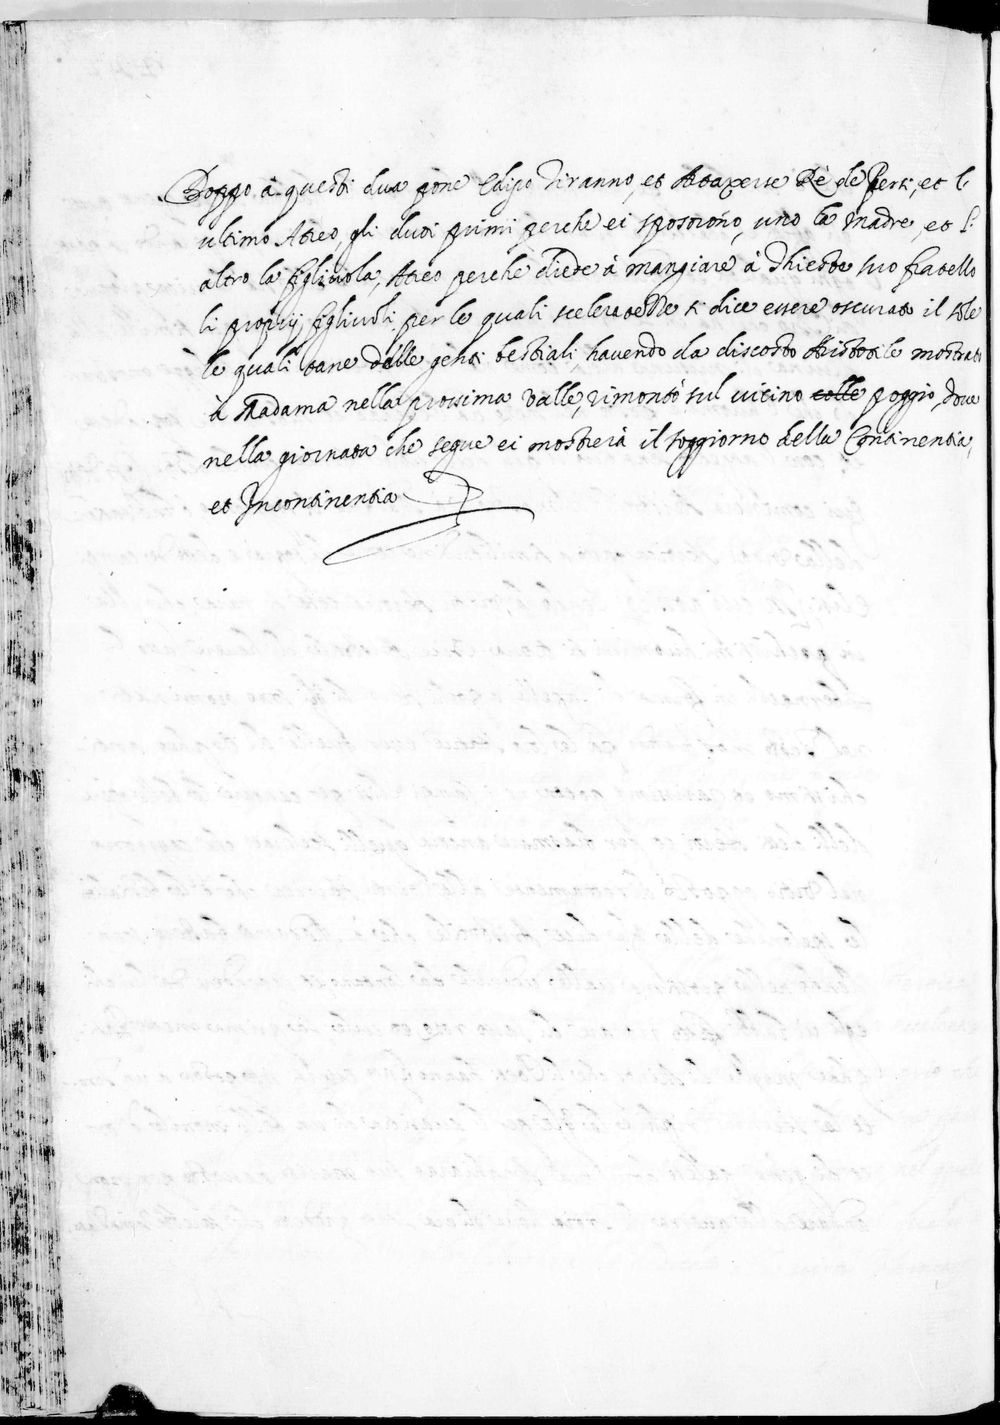 Doppo à questi dua pone Edipo Tiranno, et Artaxerse Rè de Persi, et l'
ultimo Atreo, gli duoi primi perche ei sposorono, uno la Madre, et l'
altro la figliuola, Atreo perche diede à mangiare à Thieste suo fratello
li proprij figliuoli, per le quali sceleratezze si dice essere oscurato il sole
le quali tane delle genti bestiali havendo da discosto Aristotile mostrato
à Madama nella prossima Valle, rimontò sul vicino colle poggio, dove
nella giornata che segue ei mosterrà il soggiorno della Continentia,
et Incontinentia